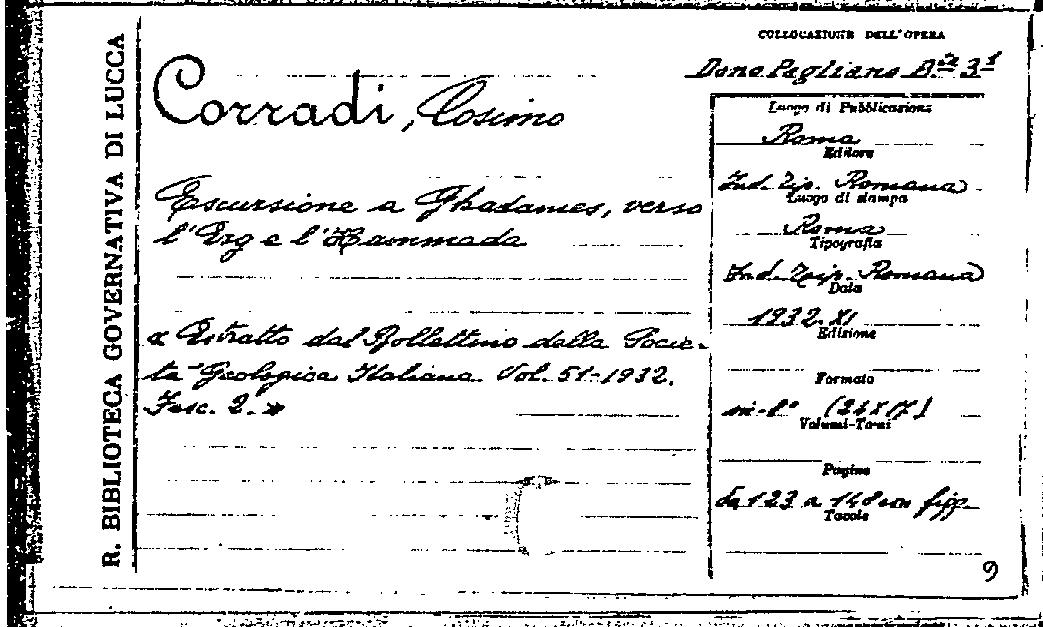 R. BIBLIOTECA GOVERNATIVA DI LUCCA
Corradi, Cosimo
Escursione a Ghadames, verso
l'Erg e l'Hammada
« Estratto dal Bollettino della Socie-
tà Geologica Italiana. Vol. 51-1932.
Fasc. 2. »
COLLOCAZIONE DELL'OPERA
Dono Pagliano
Luogo di Pubblicazione
Roma
Editore
Ind. Tip. Romana
Luogo di stampa
Roma
Tipografia
Ind. Tip. Romana
Data
1932. XI
Edizione
Formato
in-8° (24x17)
Volumi-Tomi
Pagine
da 123 a 148 con figg.
Tavole
9